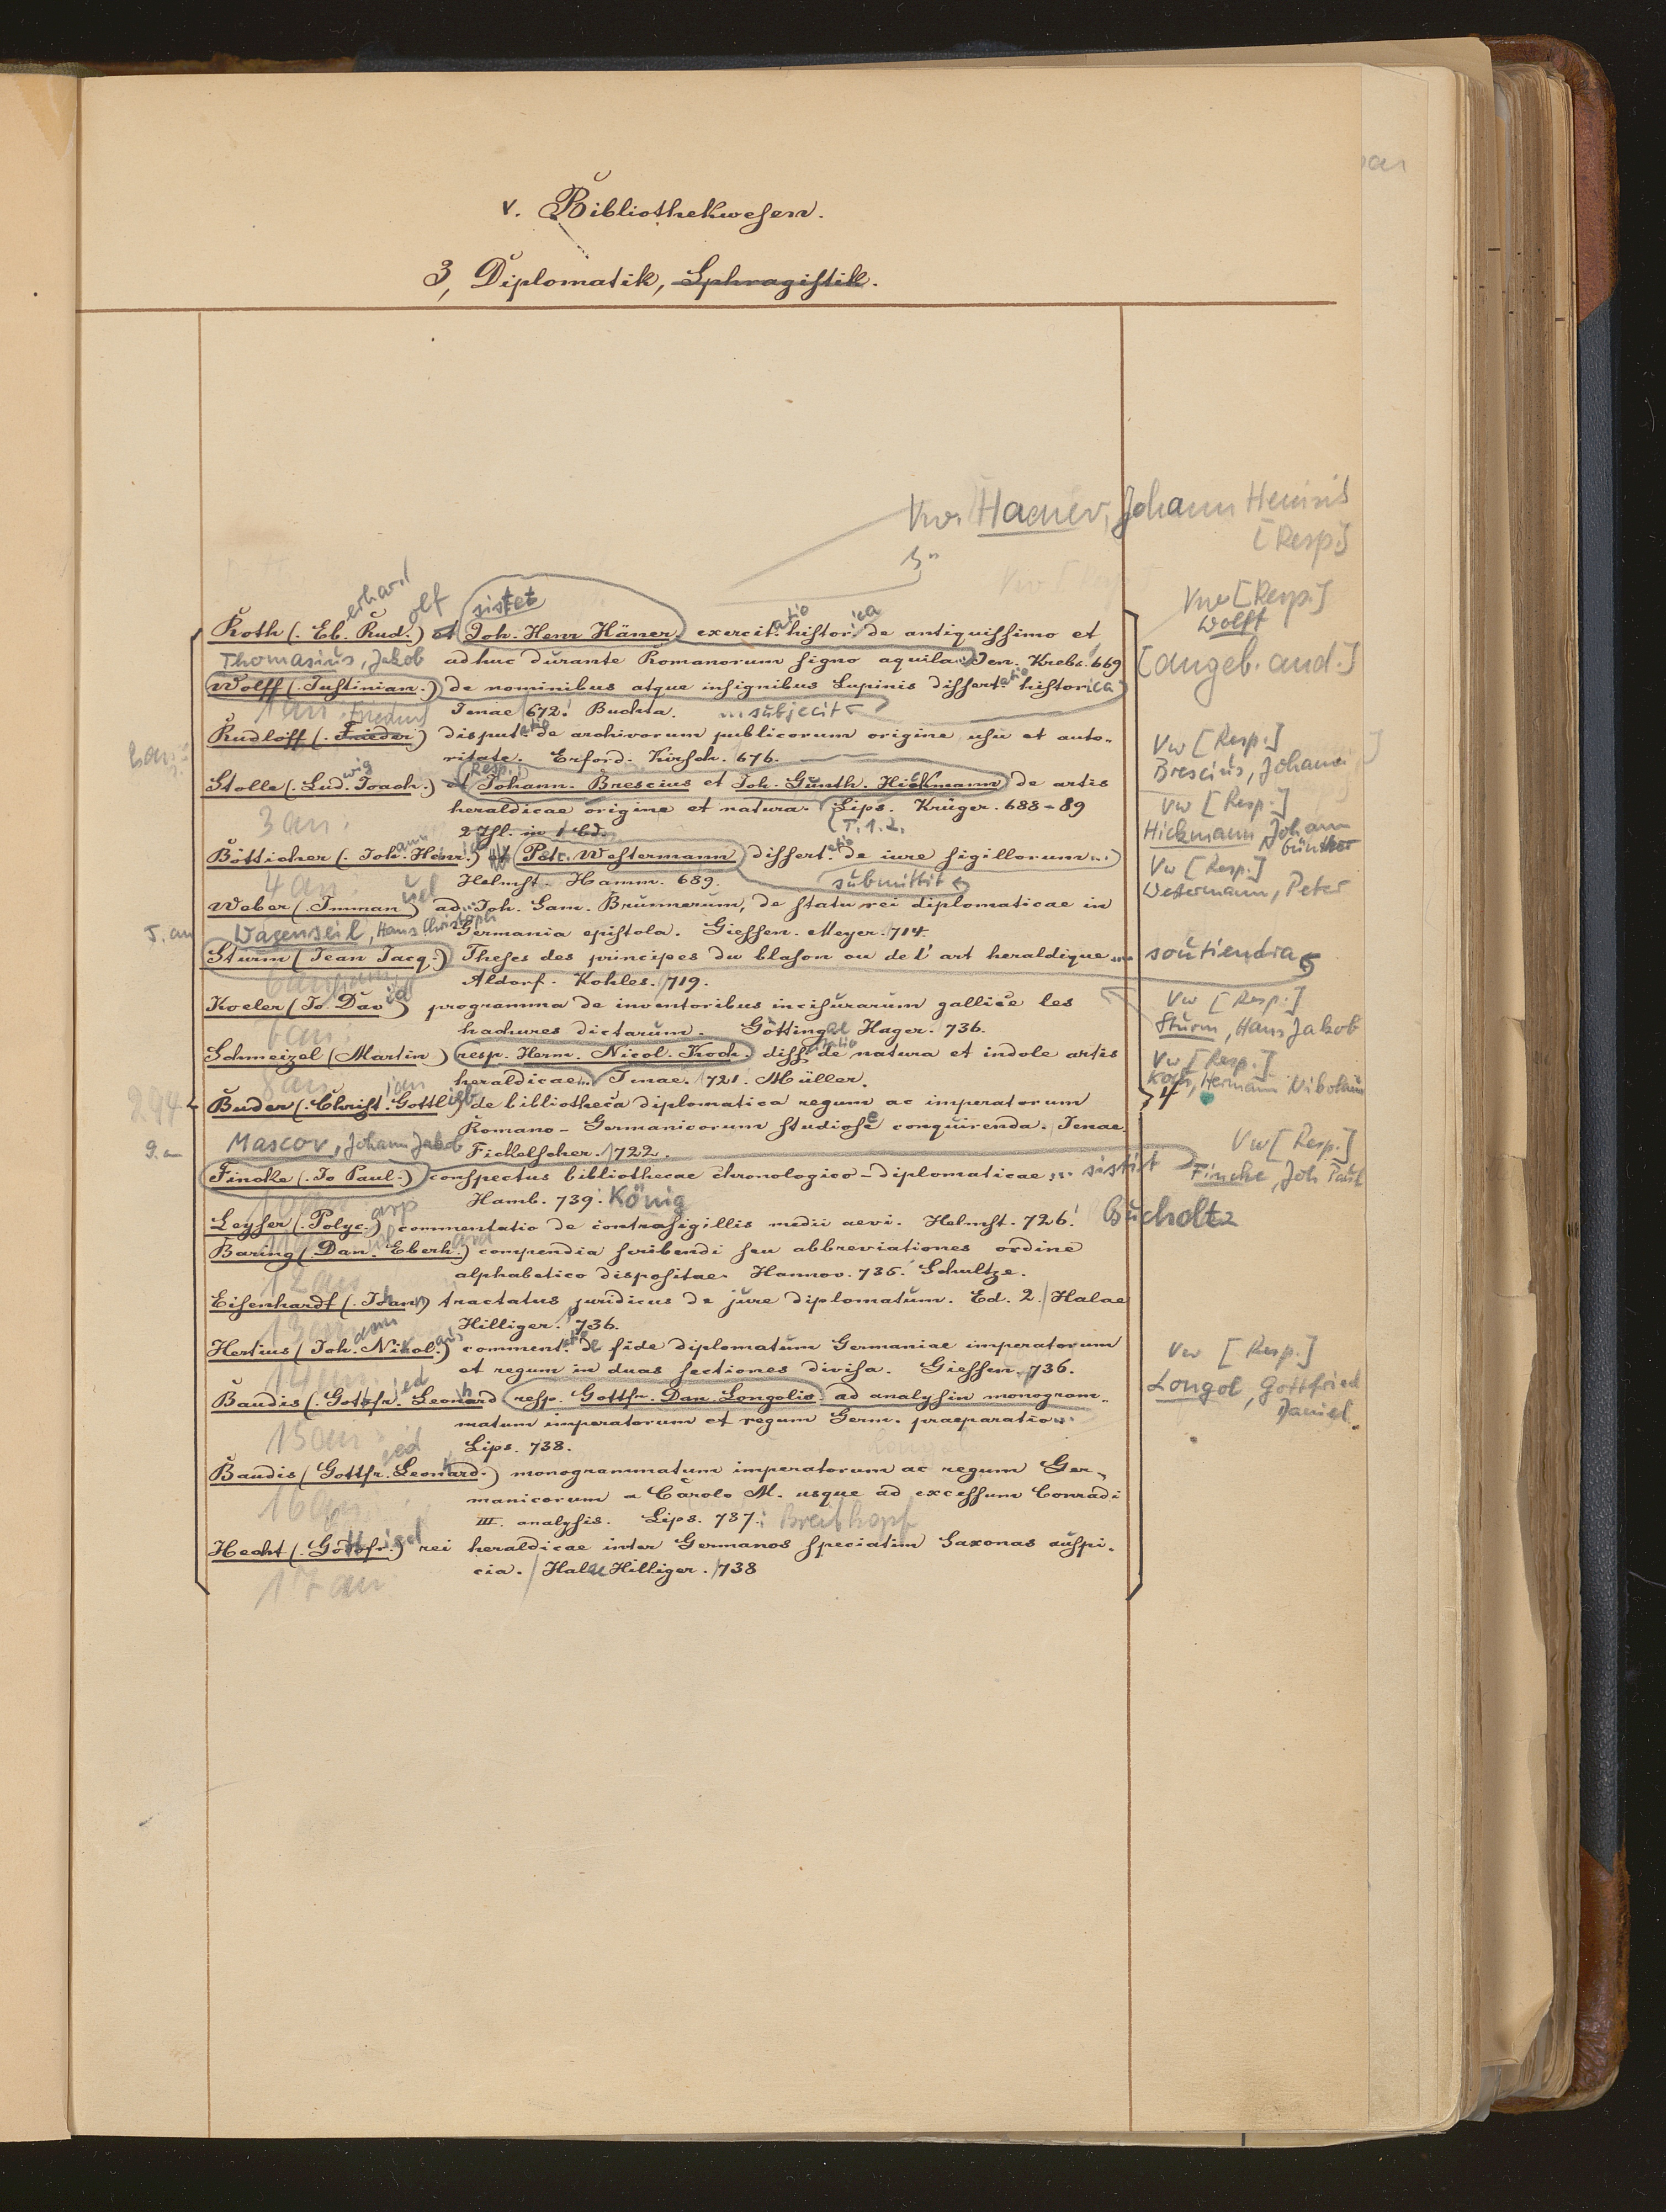 v. Bibliothekwesen.
3, Diplomatik, Sphragistik.
Vw. Haener, Johann Heinrich
[Resp.]
erhard olf sistet
Vw [Resp.]
Wolff
Roth (. Eb. Rud.) et Joh. Henr Häner. exercit.atio histor.ica de antiquissimo et
Thomasius, Jakob adhuc durante Romanorum signo aquila. Jen. Krebs. 669
[angeb. and.]
Wolff (. Justinian.) de nominibus atque insignibus Lupinis dissert.atio historica
1 an. Jenae 672. Buchta. ... subjecit
Rudloff (. Frieder.) disputatio de archivorum publicorum origine usu et auto-
ritate. Erford. Kirsch. 676.
2 an.
Vw [Resp.]
Brescius, Johann
Stolle (. Lud.wig Joach.) et (Resp.) Johann. Brescius et Joh. Günth. Hickmann de artis
heraldicae origine et natura. Lips. Krüger. 688-89
3 an.
2 Thl. in 1 Bd. (T. 1. 2.
Vw [Resp.]
Hickmann Johann
Günther
Bötticher (. Joh.ann Henr.) Petr. Westermann dissert.atio de iure sigillorum ...
4 an. Helmst. Hamm. 689. submittit
Vw [Resp.]
Westermann, Peter
Weber (. Immanuel) ad Joh. Sam. Brunnerum, de statu rei diplomaticae in
5. an Wagenseil, Hans Christoph Germania epistola. Giessen. Meyer. 714.
Sturm (Jean Jacq.) Theses des principes du blason ou de l'art heraldique ... soutiendra
6 an Aldorf. Kohles. 719.
Vw [Resp.]
Sturm, Hans Jakob
Koeler (Jo David) programma de inventoribus incisurarum gallice les
7 an. hachures dictarum. Göttingae Hager. 736.
Schmeizel (Martin) resp. Herm. Nicol. Koch. dissertatio de natura et indole artis
8 an heraldicae... Jenae. 1721. Müller.
Vw [Resp.]
Koch, Hermann Nikolaus
294
Buder (. Christian Gottlieb) de bibliotheca diplomatica regum ac imperatorum
Romano-Germanicorum studiose conquirenda. Jenae
9. an Mascov, Johann Jakob Fickelscher. 1722.
Vw [Resp.]
Fincke, Joh Paul
Fincke (. Jo Paul.) conspectus bibliothecae chronologico-diplomaticae ... sistit
10 an Hamb. 739. König
Leyser (. Polyc.arp) commentatio de contrasigillis medii aevi. Helmst. 726. Bucholtz
11 an
Baring (. Dan. Eberhard.) compendia scribendi seu abbreviationes ordine
12 an alphabetico dispositae. Hannov. 735. Schultze.
Eisenhardt (. Johann) tractatus juridicus de jure diplomatum. Ed. 2. Halae
13 an Hilliger. 736.
Hertius (Joh.ann Nikol.aus) comment.atio de fide diplomatum Germaniae imperatorum
14 an. et regum in duas sectiones divisa. Giessen. 736.
Vw [Resp.]
Longol, Gottfried
Daniel.
Baudis (. Gottfr.ied Leonhard resp. Gottfr. Dan. Longolis. ad analysin monogram-
matum imperatorum et regum Germ. praeparatio ...
15 an Lips. 738.
Baudis (Gottfr.ied Leonhard.) monogrammatum imperatorum ac regum Ger-
16 an manicorum a Carolo M. usque ad excessum Conradi
III. analysis. Lips. 737. Breitkopf
Hecht (. Gottfr.ied) rei heraldicae inter Germanos speciatim Saxonas auspi-
17 an. cia. Halae Hilliger. 1738